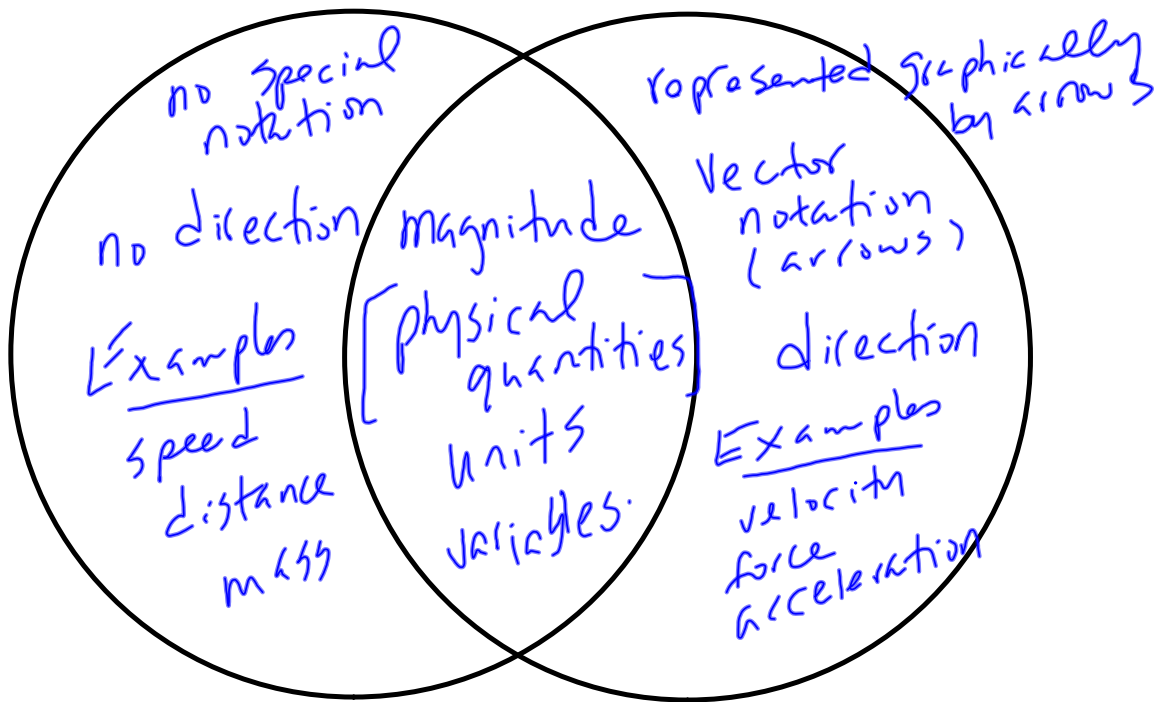 no special
notation
no direction
Examples
speed
distance
mass
magnitude
[physical
quantities]
units
variables.
represented graphically
by arrows
vector
notation
(arrows)
direction
Examples
velocity
force
acceleration